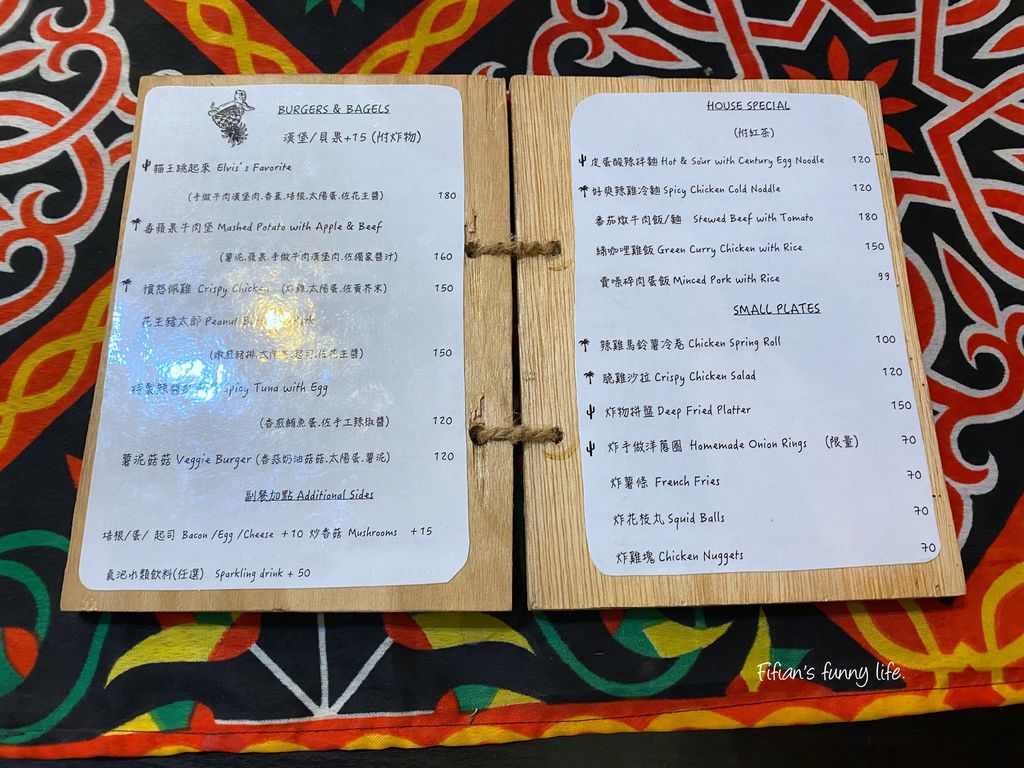 BURGERS & BAGELS
漢堡/貝果+15 (附炸物)
貓王跳起來 Elvis's Favorite
(手做牛肉漢堡肉.香蕉.培根.太陽蛋.佐花生醬) 180
番蘋果牛肉堡 Mashed Potato with Apple & Beef
(薯泥.蘋果.手做牛肉漢堡肉.佐獨家醬汁) 160
憤怒佩雞 Crispy Chicken (炸雞.太陽蛋.佐黃芥末) 150
花生豬太郎 Peanut
(嫩煎豬排.太陽 起司.佐花生醬) 150
特製辣醬 Spicy Tuna with Egg
(香煎鮪魚蛋.佐手工辣椒醬) 120
薯泥菇菇 Veggie Burger (香蒜奶油菇菇.太陽蛋.薯泥) 120
副餐加點 Additional Sides
培根/蛋/ 起司 Bacon /Egg /Cheese +10 炒香菇 Mushrooms +15
氣泡水類飲料(任選) Sparkling drink + 50
HOUSE SPECIAL
(附紅茶)
皮蛋酸辣拌麵 Hot & Sour with Century Egg Noodle 120
好爽辣雞冷麵 Spicy Chicken Cold Noddle 120
番茄燉牛肉飯/麵 Stewed Beef with Tomato 180
綠咖哩雞飯 Green Curry Chicken with Rice 150
賣噪碎肉蛋飯 Minced Pork with Rice 99
SMALL PLATES
辣雞馬鈴薯冷卷 Chicken Spring Roll 100
脆雞沙拉 Crispy Chicken Salad 120
炸物拼盤 Deep Fried Platter 150
炸手做洋蔥圈 Homemade Onion Rings (限量) 70
炸薯條 French Fries 70
炸花枝丸 Squid Balls 70
炸雞塊 Chicken Nuggets 70
Fifian's funny life.